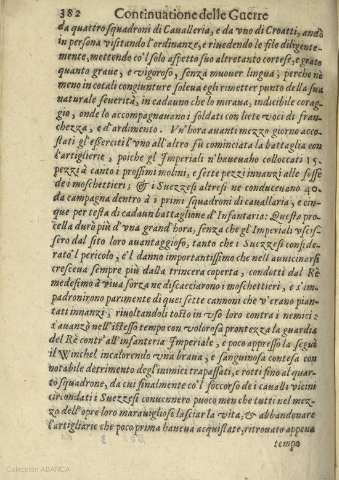 382 Continuatione delle Guerre
da quattro squadroni di Cavalleria, e da vno di Croatti, andò
in persona visitando l'ordinanze, e riuedendo le file diligente-
mente, mettendo co'l solo aspetto suo altretanto cortese, e grato
quanto graue, e vigoroso, senza muouer lingua; perche nè
meno in cotali congiunture soleua egli rimetter punto della sua
naturale seuerità, in cadauno che lo miraua, indicibile corag-
gio, onde lo accompagnauano i soldati con liete voci di fran-
chezza, e d'ardimento. Vn'hora auante mezzo giorno acco-
stati gl'esserciti l'vno all'altro fù cominciata la battaglia con
l'artiglierie, poiche gl'Imperiali n'haueuano collocati 15.
pezzi à canto i prossimi molini, e sette pezzi innanzi alle fosse
de i moschettieri; & i Suezzesi altresi ne conduceuano 40.
da campagna dentro à i primi squadroni di cauallaria, e cin-
que per testa di cadaun battaglione d'Infantaria: Questa pro-
cella durò più d'vna grand'hora, senza che gl'Imperiali vscis-
sero dal sito loro auantaggioso, tanto che i Suezzesi conside-
rato'l pericolo, e'l danno importantissimo che nell'auuicinarsi
cresceua sempre più dalla trincera coperta, condotti dal Rè
medesimo à viua forza ne discacciarono i moschettieri, e s'im-
padronirono parimente di quei sette cannoni che v'erano pian-
tati innanzi, riuoltandoli tosto in vso loro contra i nemici:
s'auanzò nell'istesso tempo con volorosa prontezza la guardia
del Rè contr'all'infanteria Imperiale, e poco appresso la seguì
il Winchel incalorendo vna braua, e sanguinosa contesa con
notabile detrimento degl'inimici trapassati, e rotti sino al quar-
to squadrone, da cui finalmente co'l soccorso de i caualli vicini
circondati i Suezzesi conuennero puoco men che tutti nel mez-
zo dell'opre loro marauigliose lasciar la vita, & abbandonare
l'artigliarie che poco prima haueua acquistate, ritrouato appena
tempo
Colección ABANCA